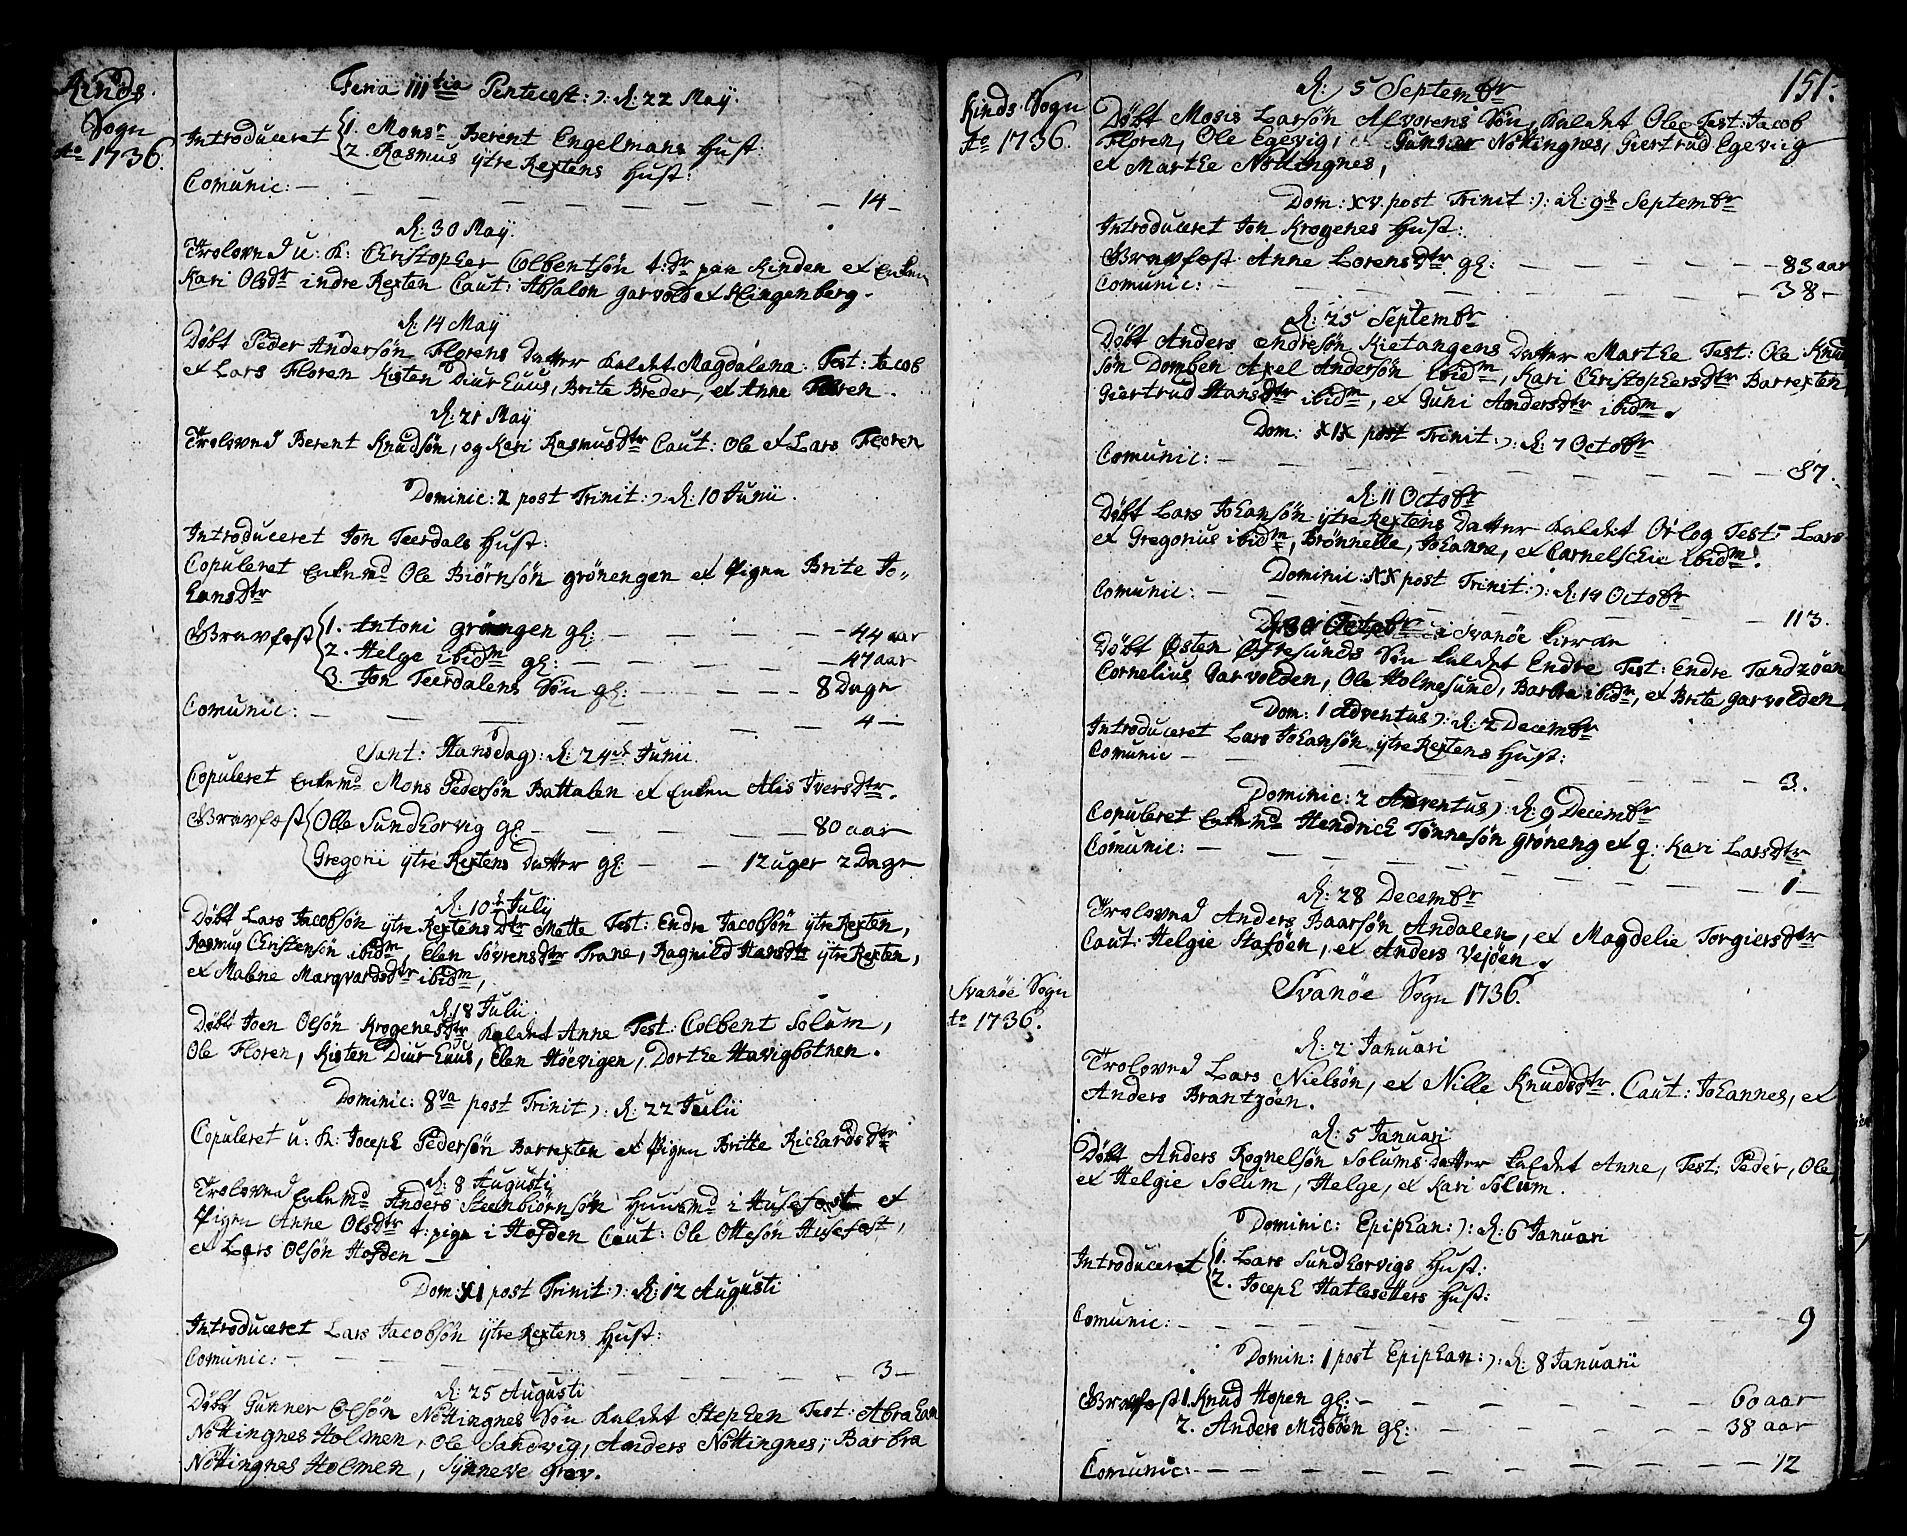 Kinds
Sogn
Ao 1736.
Feria IIItia Pentecost: ): d: 22 May.
Introduceret 1. Monsr Berent Engelmans Hust:
2. Rasmus ytre Rextens Hust:
Comunic: — 14 —
d: 30 May.
Troloved u: k: Christopher Colbentsøn t: dr paa Kinden et Enken
Kari Olsdr indre Rexten Caut: Absalon Garvold et Klingenberg.
d: 14 May
Døbt Peder Andersøn Florens Datter kaldet Magdalena. Test: Jacob
et Lars Floren Kisten Diurhuus, Brite Breder, et Anne Floren.
d: 21 May
Troloved Berent Knudsøn, og Kari Rasmusdtr Caut: Ole et Lars Floren
Dominic: 2 post Trinit: ): d: 10 Junii.
Introduceret Jon Teerdals Hust:
Copuleret Enkemd Ole Biørnsøn Grønengen et Pigen Brite Jo-
hansdtr
Gravfæst 1. Antoni Grøngen gl: — 44 aar
2. Helge ibidm gl: — 47 aar
3. Jon Teerdalens Søn gl: — 8 Dage
Comunic: — 4 —
Sant: Hansdag ): d: 24de Junii.
Copuleret Enkemd Mons Pedersøn Battalen et Enken Alis Iversdtr.
Gravfæst Olle Sundhorvig gl: — 80 aar
Gregorii ytre Rextens Datter gl: — 12 uger 2 Dage
d: 10de July
Døbt Lars Jacobsøn ytre Rextens Dtr Mette Test: Endre Jacobsøn ytre Rexten,
Rasmus Christensøn ibidm, Elen Sørrensdtr Trane, Ragnild Hansdtr ytre Rexten,
et Malene Marqvardsdtr ibidm,
d: 18 Julii
Døbt Joen Olsøn Krogenes Dtr kaldet Anne Test: Colbent Solum,
Ole Floren, Kisten Diurhuus, Elen Høevigen, Dorthe Havigbotnen.
Dominic: 8va post Trinit ): d: 22 Julii
Copuleret u: k: Joceph Pedersøn Barrexten et Pigen Britte Richardsdtr
d: 8 Augusti
Troloved Enkemd Anders Steenbiørnsøn Huusmd i Husefæst et
Pigen Anne Olsdtr t: pige i Hofden Caut: Ole Ottesøn Husefæst,
et Lars Olsøn Hofden —
Dom: XI post Trinit: ): d: 12 Augusti
Introduceret Lars Jacobsøn ytre Rextens Hust:
Comunic: — 3 —
d: 25 Augusti
Døbt Gunner Olsøn Nøttingnes Søn kaldet Stephen Test: Abraham
Nøttingnes Holmen, Ole Sandvig, Anders Nøttingnes, Barbra
Nøttingnes Holmen, Synneve Grov.
Kinds Sogn
Ao 1736.
151.
d: 5 Septembr
Døbt Mosis Larsøn Afvorens Søn, kaldet Ole Test: Jacob
Floren, Ole Egevig, Gunner Nøttingnes, Giertrud Egevig
et Marthe Nøttingnes,
Dom: XV. post Trinit: ): d: 9de Septembr
Introduceret Jon Krogenes Hust:
Gravfæst Anne Lorensdtr gl: — 83 aar
Comunic: — 38 —
d: 25 Septembr
Døbt Anders Endresøn Kietangens Datter Marthe Test: Ole Knud
søn Domben Axel Andersøn ibidm, Kari Christophersdtr Barrexten,
Giertrud Hansdtr ibidm, et Guni Andersdtr ibidm.
Dom: XIX post Trinit: ): d: 7 Octobr
Comunic: — 87.
d: 11 Octobr
Døbt Lars Johansøn ytre Rextens Datter kaldet Orlog Test: Lars
et Gregorius ibidm, Brønnette, Johanne, et Carnelschie ibidm.
Dominic: XX post Trinit: ): d: 14 Octobr
Comunic: — 113.
d: 30 Octobr i Svanøe Kierke
Døbt Østen Øfresunds Søn kaldet Endre Test: Endre Tandzøen
Cornelius Garvolden, Ole Holmesund, Barbra ibidm, et Brite Garvolden
Dom: 1 Adventus ): d: 2 Decembr
Introduceret Lars Johansøn ytre Rextens Hust:
Comunic — 3.
Dominic: 2 Adventus ): d: 9 Decembr
Copuleret Enkemd Hendrich Tønnesøn Grøneng et q: Kari Larsdtr
Comunic: — 1 —
d: 28 Decembr
Troloved Anders Baarsøn Andalen, et Magdelie Torgiersdtr
Caut: Helgie Staføen, et Anders Vejøen.
Svanøe Sogn
Ao 1736.
Svanøe Sogn 1736.
d: 2 Januari
Troloved Lars Nielsøn, et Nille Knudsdtr. Caut: Johannes, et
Anders Brantzøen.
d: 5 Januari
Døbt Anders Rognelsøn Solums Datter kaldet Anne, Test: Peder, Ole
et Helgie Solum, Helge, et Kari Solum.
Dominic: Epiphan: ): d: 6 Januari
Introduceret 1. Lars Sundhorvigs Hust:
2. Joceph Hatlesetters Hust:
Comunic: — 9
Domin: 1 post Epiphan: ): d: 8 Januarii
Gravfæst 1. Knud Hopen gl: — 60 aar
2. Anders Midbøen gl: — 38 aar
Comunic: — 12